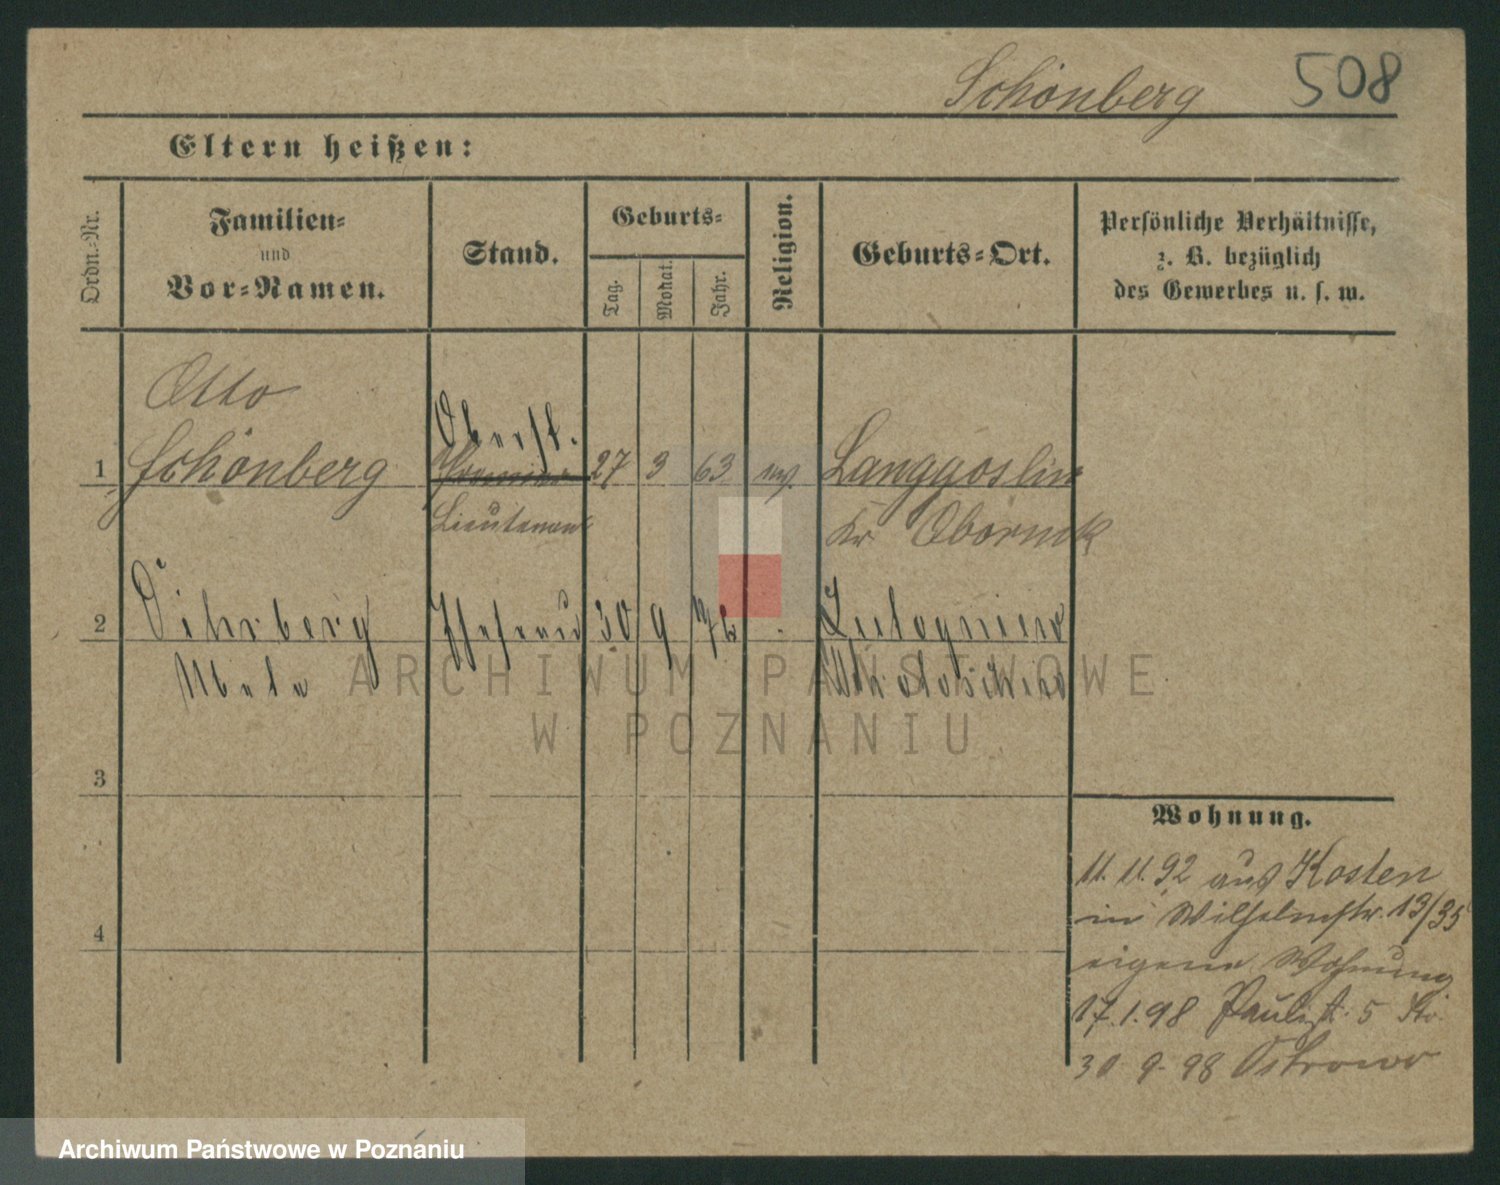 Schönberg 508
Eltern heißen:
Ordn.-Nr.
Familien-
und
Vor-Namen.
Stand.
Geburts-
Tag.
Monat.
Jahr.
Religion.
Geburts-Ort.
Persönliche Verhältnisse,
z. B. bezüglich
des Gewerbes u. s. w.
Otto
Oberst.
1 Schönberg 27 3 63 Langgoslin
Lieutenant Kr Obornik
2 Ehefrau 30 9 72
3
Wohnung.
11. 11. 92 aus Kosten
in Wilhelmstr. 13/35
4
eigene Wohnung
17. 1. 98 Paulist. 5
30 9. 98 Ostrowo
ARCHIWUM PAŃSTWOWE
W POZNANIU
Archiwum Państwowe w Poznaniu